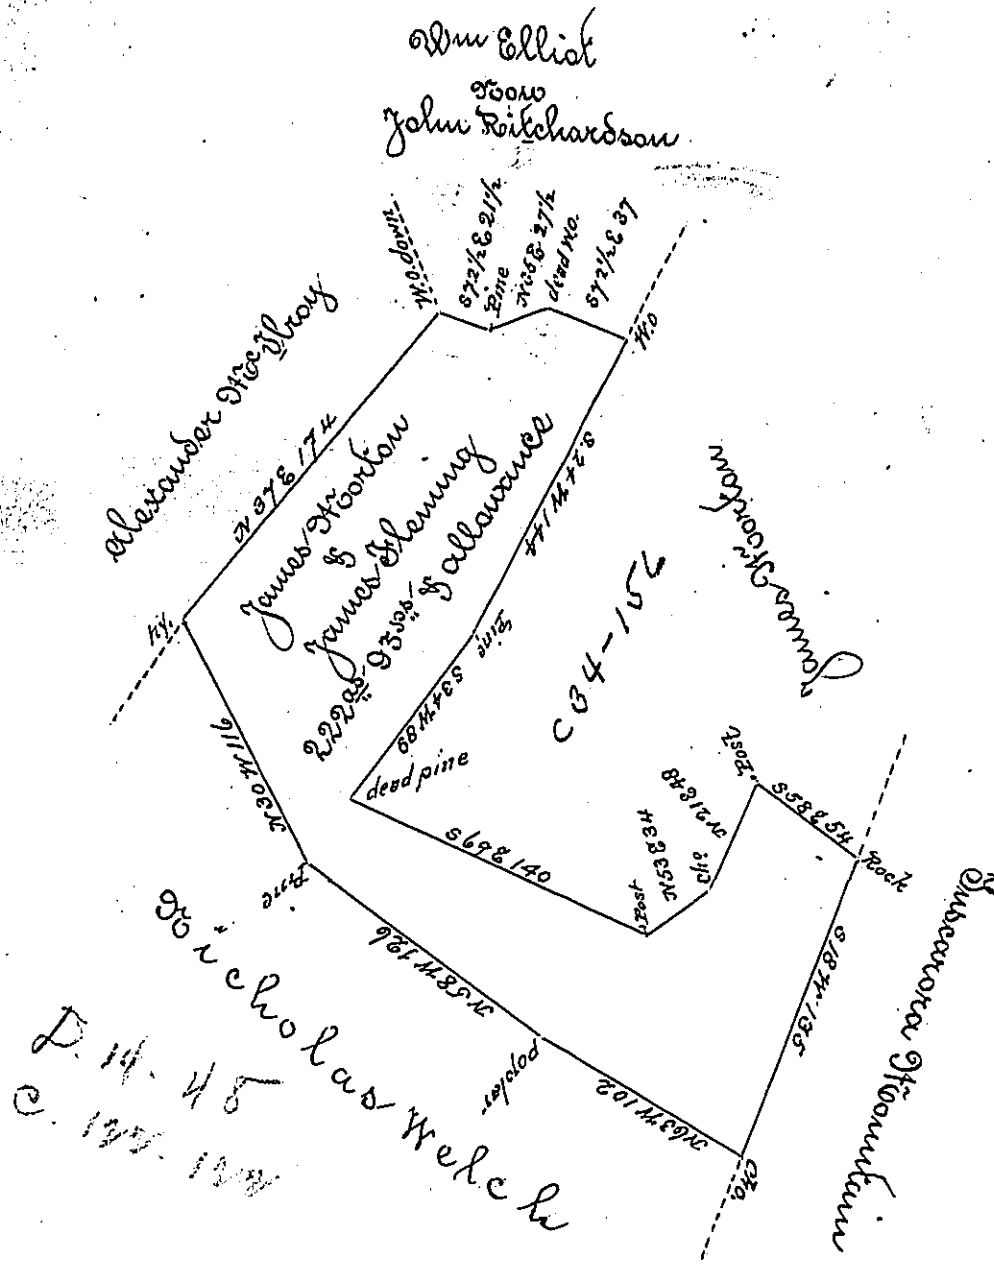 Wm Elliot
Now
John Ritchardson
W.O. down
S 72 1/2 E 21 1/2
Pine
N 65 E 27 1/2
dead W.O.
S 72 1/2 E 37
W.O
Alexander McIlroy
N 37 E 174
James Morton
&
James Fleming
222 as. 93 ps. & allowance
S. 24 W 144
Pine
S 34 W 89
dead pine
James Morton
C 34-156
Hy.
N 30 W 116
Pine
S 69 E 140
Post
N 53 E 34
C.O.
N 21 E 48
Post
S 58 E 54
Rock
S 18 W 135
Tuscarora Mountain
N 58 W 126
poplar
N 63 W 102
Nicholas Welch
D. 14. 45